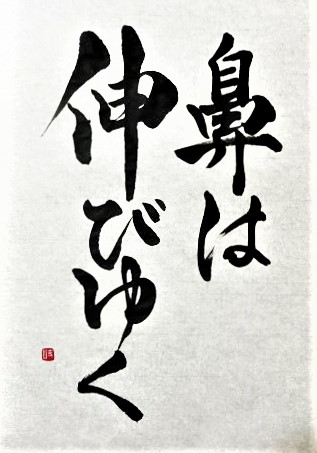 鼻は
伸びゆく